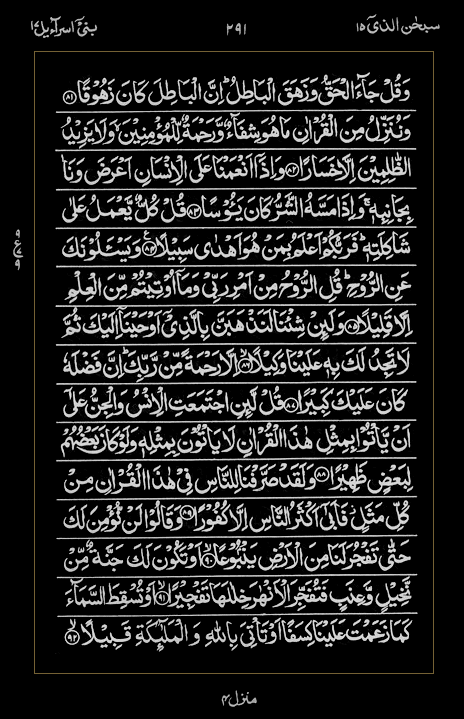 سبحٰن الذیٓ ۱۵ ۲۹۱ بنیٓ اسرآءیل ۱۷
وَقُلْ جَآءَ الْحَقُّ وَزَهَقَ الْبَاطِلُ ؕ اِنَّ الْبَاطِلَ كَانَ زَهُوْقًا ﴿۸۱﴾
وَنُنَزِّلُ مِنَ الْقُرْاٰنِ مَا هُوَ شِفَآءٌ وَّرَحْمَةٌ لِّلْمُؤْمِنِيْنَ ۙ وَلَا يَزِيْدُ
الظّٰلِمِيْنَ اِلَّا خَسَارًا ﴿۸۲﴾ وَاِذَآ اَنْعَمْنَا عَلَى الْاِنْسَانِ اَعْرَضَ وَنَاٰ
بِجَانِبِهٖ ۚ وَاِذَا مَسَّهُ الشَّرُّ كَانَ يَـُٔوْسًا ﴿۸۳﴾ قُلْ كُلٌّ يَّعْمَلُ عَلٰى
شَاكِلَتِهٖ ؕ فَرَبُّكُمْ اَعْلَمُ بِمَنْ هُوَ اَهْدٰى سَبِيْلًا ﴿۸۴﴾ ع وَيَسْـَٔلُوْنَكَ
عَنِ الرُّوْحِ ؕ قُلِ الرُّوْحُ مِنْ اَمْرِ رَبِّيْ وَمَآ اُوْتِيْتُمْ مِّنَ الْعِلْمِ
اِلَّا قَلِيْلًا ﴿۸۵﴾ وَلَئِنْ شِئْنَا لَنَذْهَبَنَّ بِالَّذِيْٓ اَوْحَيْنَآ اِلَيْكَ ثُمَّ
لَا تَجِدُ لَكَ بِهٖ عَلَيْنَا وَكِيْلًا ﴿۸۶﴾ اِلَّا رَحْمَةً مِّنْ رَّبِّكَ ؕ اِنَّ فَضْلَهٗ
كَانَ عَلَيْكَ كَبِيْرًا ﴿۸۷﴾ قُلْ لَّئِنِ اجْتَمَعَتِ الْاِنْسُ وَالْجِنُّ عَلٰٓى
اَنْ يَّاْتُوْا بِمِثْلِ هٰذَا الْقُرْاٰنِ لَا يَاْتُوْنَ بِمِثْلِهٖ وَلَوْ كَانَ بَعْضُهُمْ
لِبَعْضٍ ظَهِيْرًا ﴿۸۸﴾ وَلَقَدْ صَرَّفْنَا لِلنَّاسِ فِيْ هٰذَا الْقُرْاٰنِ مِنْ
كُلِّ مَثَلٍ ؗ فَاَبٰٓى اَكْثَرُ النَّاسِ اِلَّا كُفُوْرًا ﴿۸۹﴾ وَقَالُوْا لَنْ نُّؤْمِنَ لَكَ
حَتّٰى تَفْجُرَ لَنَا مِنَ الْاَرْضِ يَنْۢبُوْعًا ﴿۹۰﴾ۙ اَوْ تَكُوْنَ لَكَ جَنَّةٌ مِّنْ
نَّخِيْلٍ وَّعِنَبٍ فَتُفَجِّرَ الْاَنْهٰرَ خِلٰلَهَا تَفْجِيْرًا ﴿۹۱﴾ۙ اَوْ تُسْقِطَ السَّمَآءَ
كَمَا زَعَمْتَ عَلَيْنَا كِسَفًا اَوْ تَاْتِيَ بِاللّٰهِ وَالْمَلٰٓئِكَةِ قَبِيْلًا ﴿۹۲﴾ۙ
منزل ۴